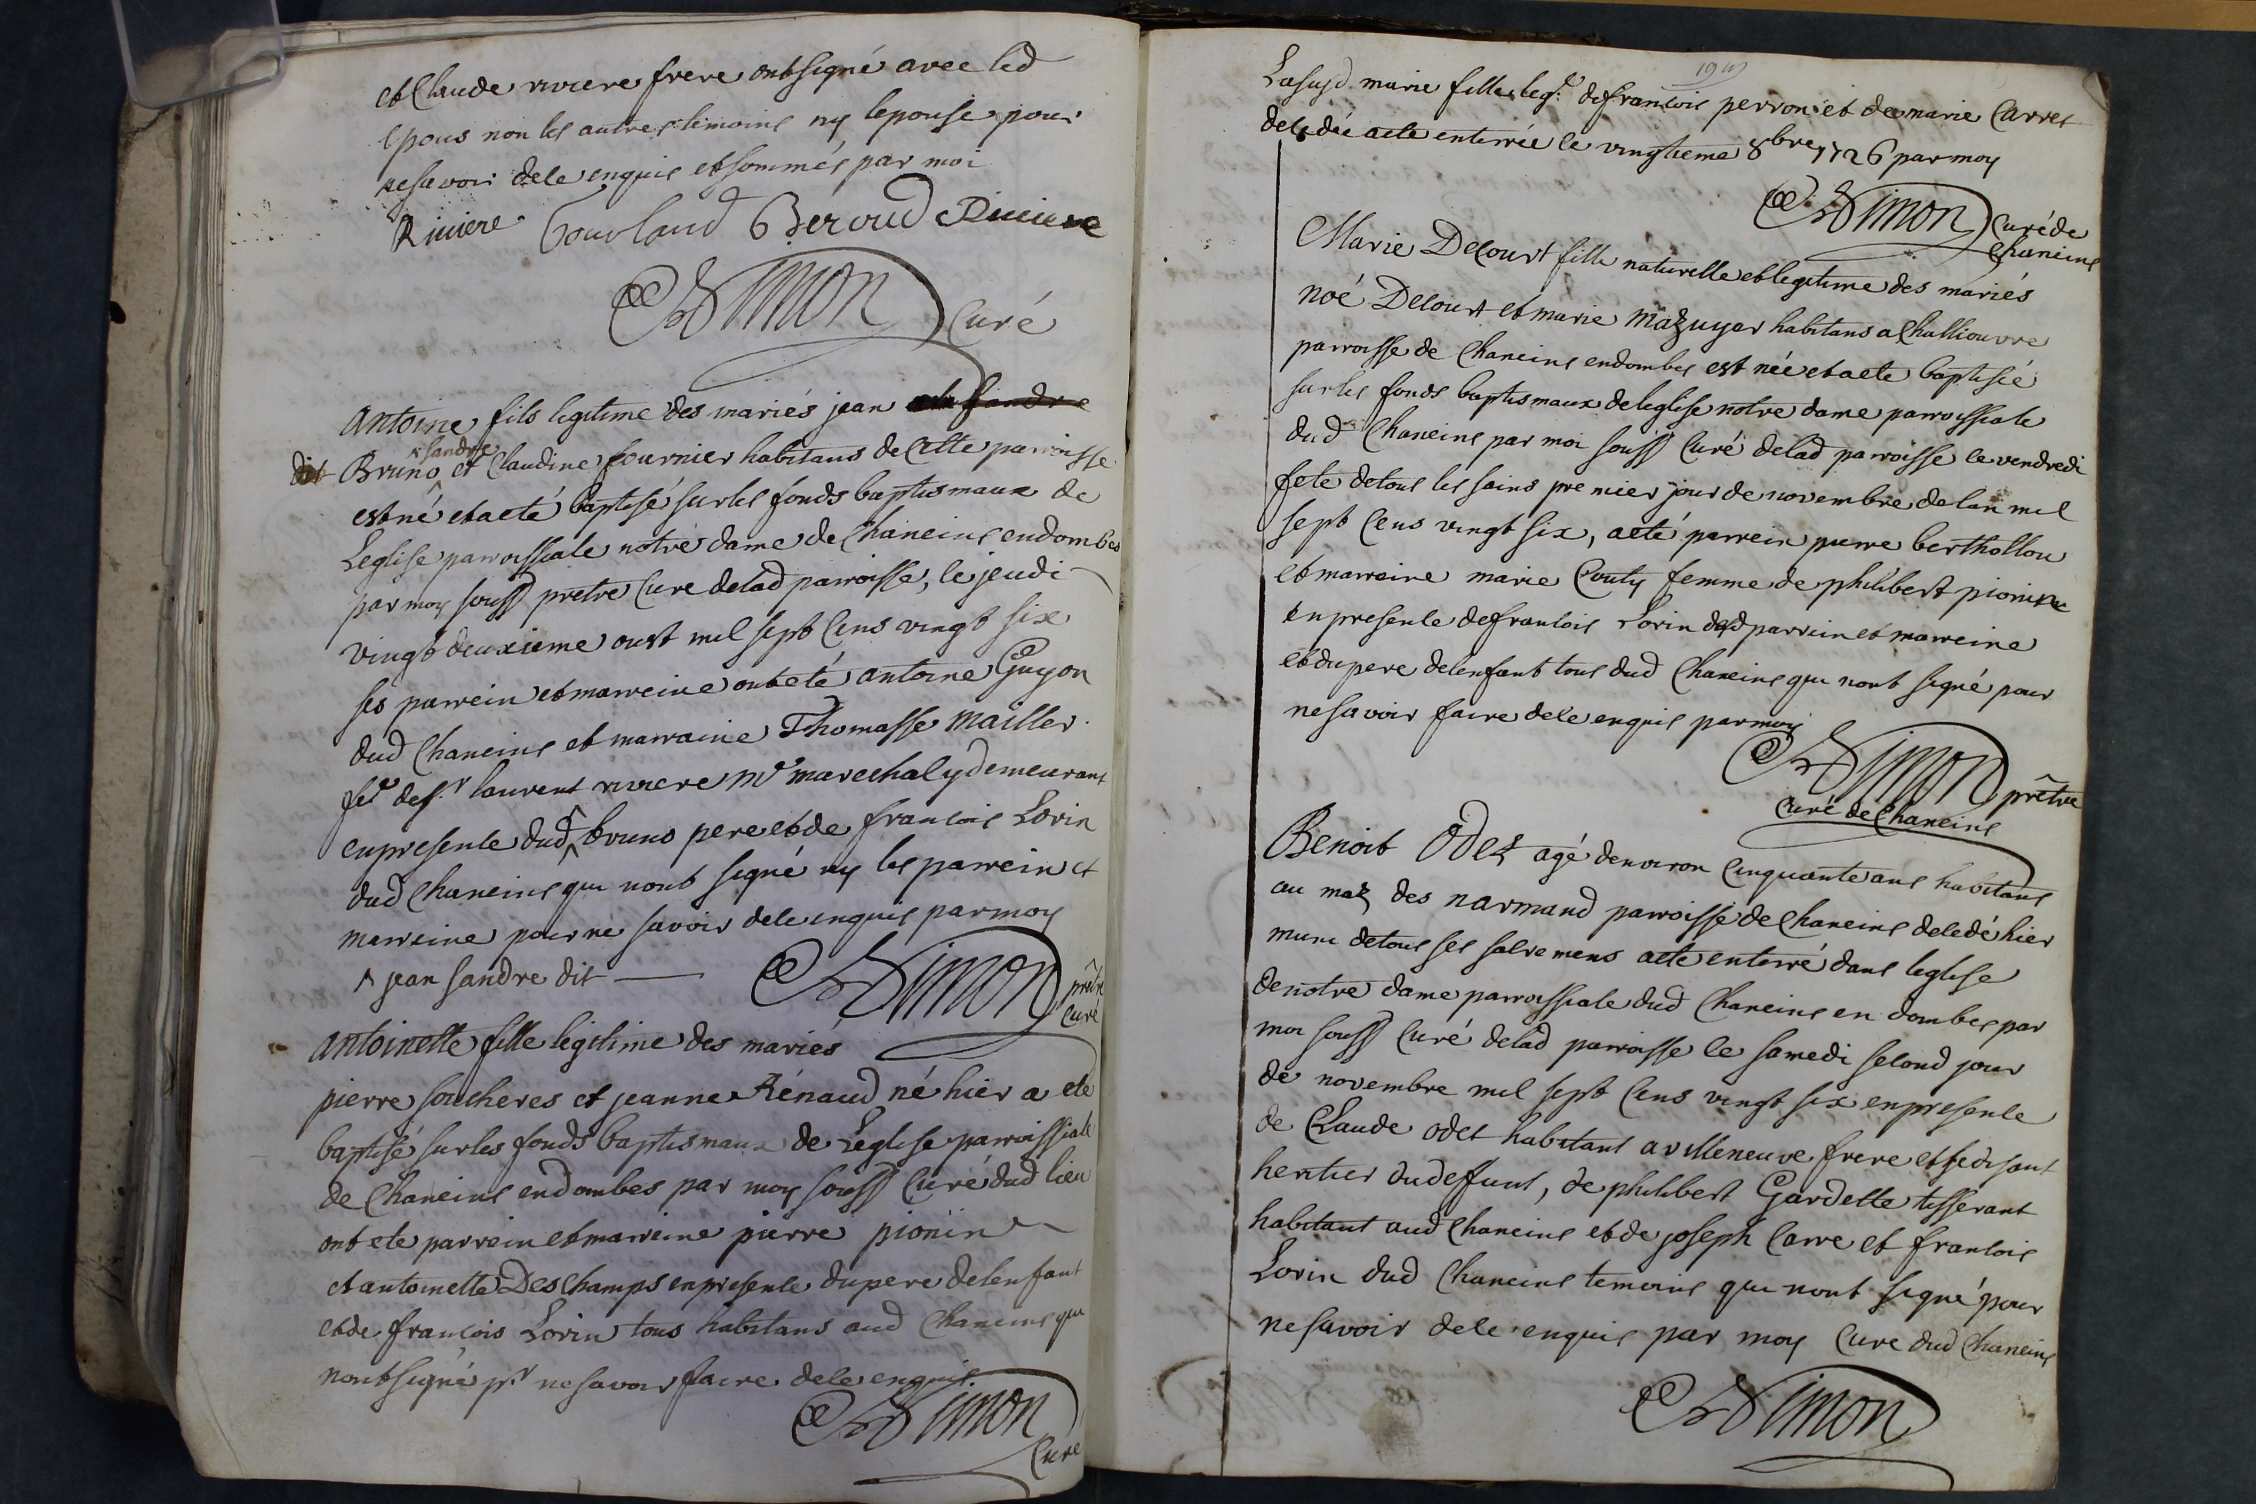 et Claude riviere frere ont signé avec led
epous non les autres temoins ny lepouse pour
ne savoir dele enquis et sommés par moi
Riviere Gourland Beroud Riviere
Simon Curé
antoine fils legitime des mariés jean
dit Bruno sandre et Claudine fournier habitans de Cette parroisse
est né et a eté baptisé sur les fonds baptismaux de
Leglise parroissiale notre dame de Chaneins en dombes
par moy souss pretre Curé delad parroisse, le jeudi
vingt deuxieme oust mil sept Cens vingt six
ses parrein et marreine ont eté antoine Guyon
dud Chaneins et marraine Thomasse mailler
fe de sr laurent riviere me marechal y demeurant
en presente dud ^ bruno pere et de francois Lorin
dud Chaneins qui nont signé ny les parrein et
marreine pour ne savoir dele enquis par moy
^ jean sandre dit
Simon prêtre Curé
antoinette fille legitime des mariés
pierre soucheres et jeanne Rénaud né hier a eté
baptisé sur les fonds baptismaux de Leglise parroissiale
de Chaneins en dombes par moy souss Curé dud lieu
ont ete parrein et marreine pierre pionin
et antoinette Des Champs en presente du pere de lenfant
et de francois Lorin tous habitans aud Chaneins qui
nont signé pr ne savoir faire dele enquis
Simon Curé
Lasusd. marie fille leg. de francois perron et de marie Carret
decedée a ete enterrée le vingtieme 8bre 1726 par moy
Simon Curé de Chaneins
Marie Decourt fille naturelle et legitime des mariés
noé Decourt et marie mazuyer habitans a Challiouvre
parroisse de Chaneins en dombes est née et a ete baptisé
sur les fonds baptismaux de leglise notre dame parroissiale
dud Chaneins par moi souss Curé delad parroisse le vendredi
fete de tous les sains premier jour de novembre de lan mil
sept Cens vingt six, a eté parrein pierre berthollon
et marreine marie Couty femme de philibert pionin
en presente de francois Lorin desd parrein et marreine
et du pere de lenfant tous dud Chaneins qui nont signé pour
ne savoir faire dele enquis par moy
Simon prêtre
Curé de Chaneins
Benoit Odet agé denviron Cinquante ans habitans
au maz des narmand parroisse de Chaneins decedé hier
muni de tous ses sacremens a ete enterré dans leglise
de notre dame parroissiale dud Chaneins en dombes par
moi souss Curé delad parroisse le samedi second jour
de novembre mil sept Cens vingt six en presente
de Claude odet habitant a villeneuve frere et se disant
heritier du defunt, de philibert Gardette tisserant
habitant aud Chaneins et de joseph Carre et francois
Lorin dud Chaneins temoins qui nont signé pour
ne savoir dele enquis par moy Curé dud Chaneins
Simon